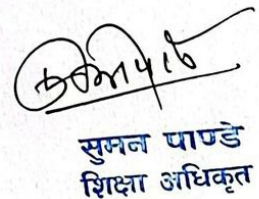 सुमन पाण्डे
शिक्षा अधिकृत